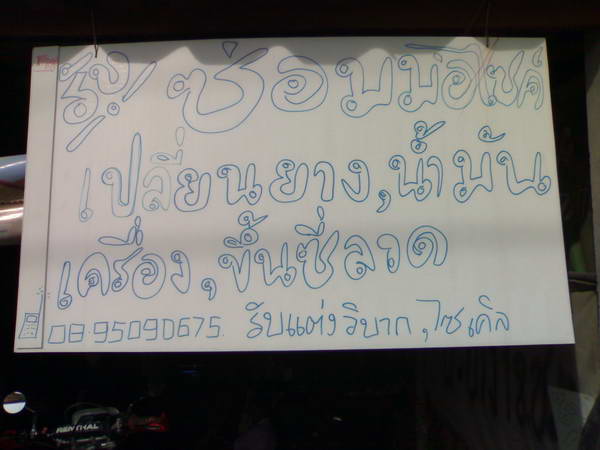 รับ ซ่อมมอไซค์
เปลี่ยนยาง,น้ำมัน
เครื่อง,ขึ้นซี่ลวด
08-95090675. รับแต่งวิบาก,ไซเคิล
RENTHAL